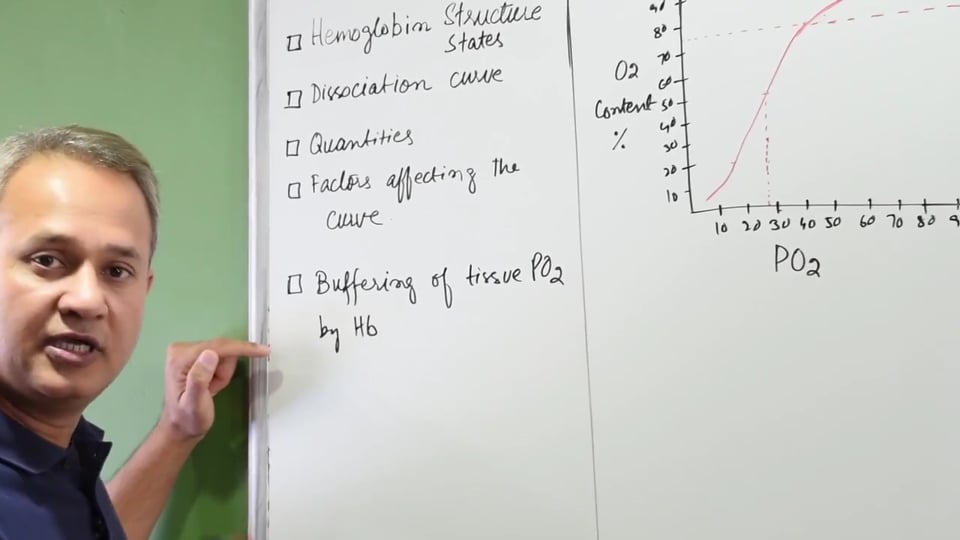 Hemoglobin Structure
States
Dissociation curve
Quantities
Factors affecting the
curve
Buffering of tissue PO2
by Hb
90
80
70
O2
60
Content
50
40
%
30
20
10
10 20 30 40 50 60 70 80
PO2